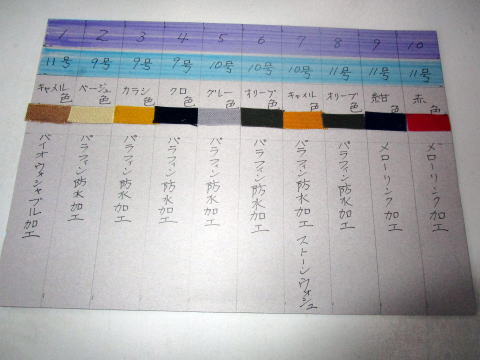 1 2 3 4 5 6 7 8 9 10
11号 9号 9号 9号 10号 10号 10号 11号 11号 11号
キャメル色 ベージュ色 カラシ色 クロ色 グレー色 オリーブ色 キャメル色 オリーブ色 紺色 赤色
バイオウォシャブル加工
パラフィン防水加工
パラフィン防水加工
パラフィン防水加工
パラフィン防水加工
パラフィン防水加工
パラフィン防水加工 ストーンウォシュ
パラフィン防水加工
メローリンク加工
メローリンク加工